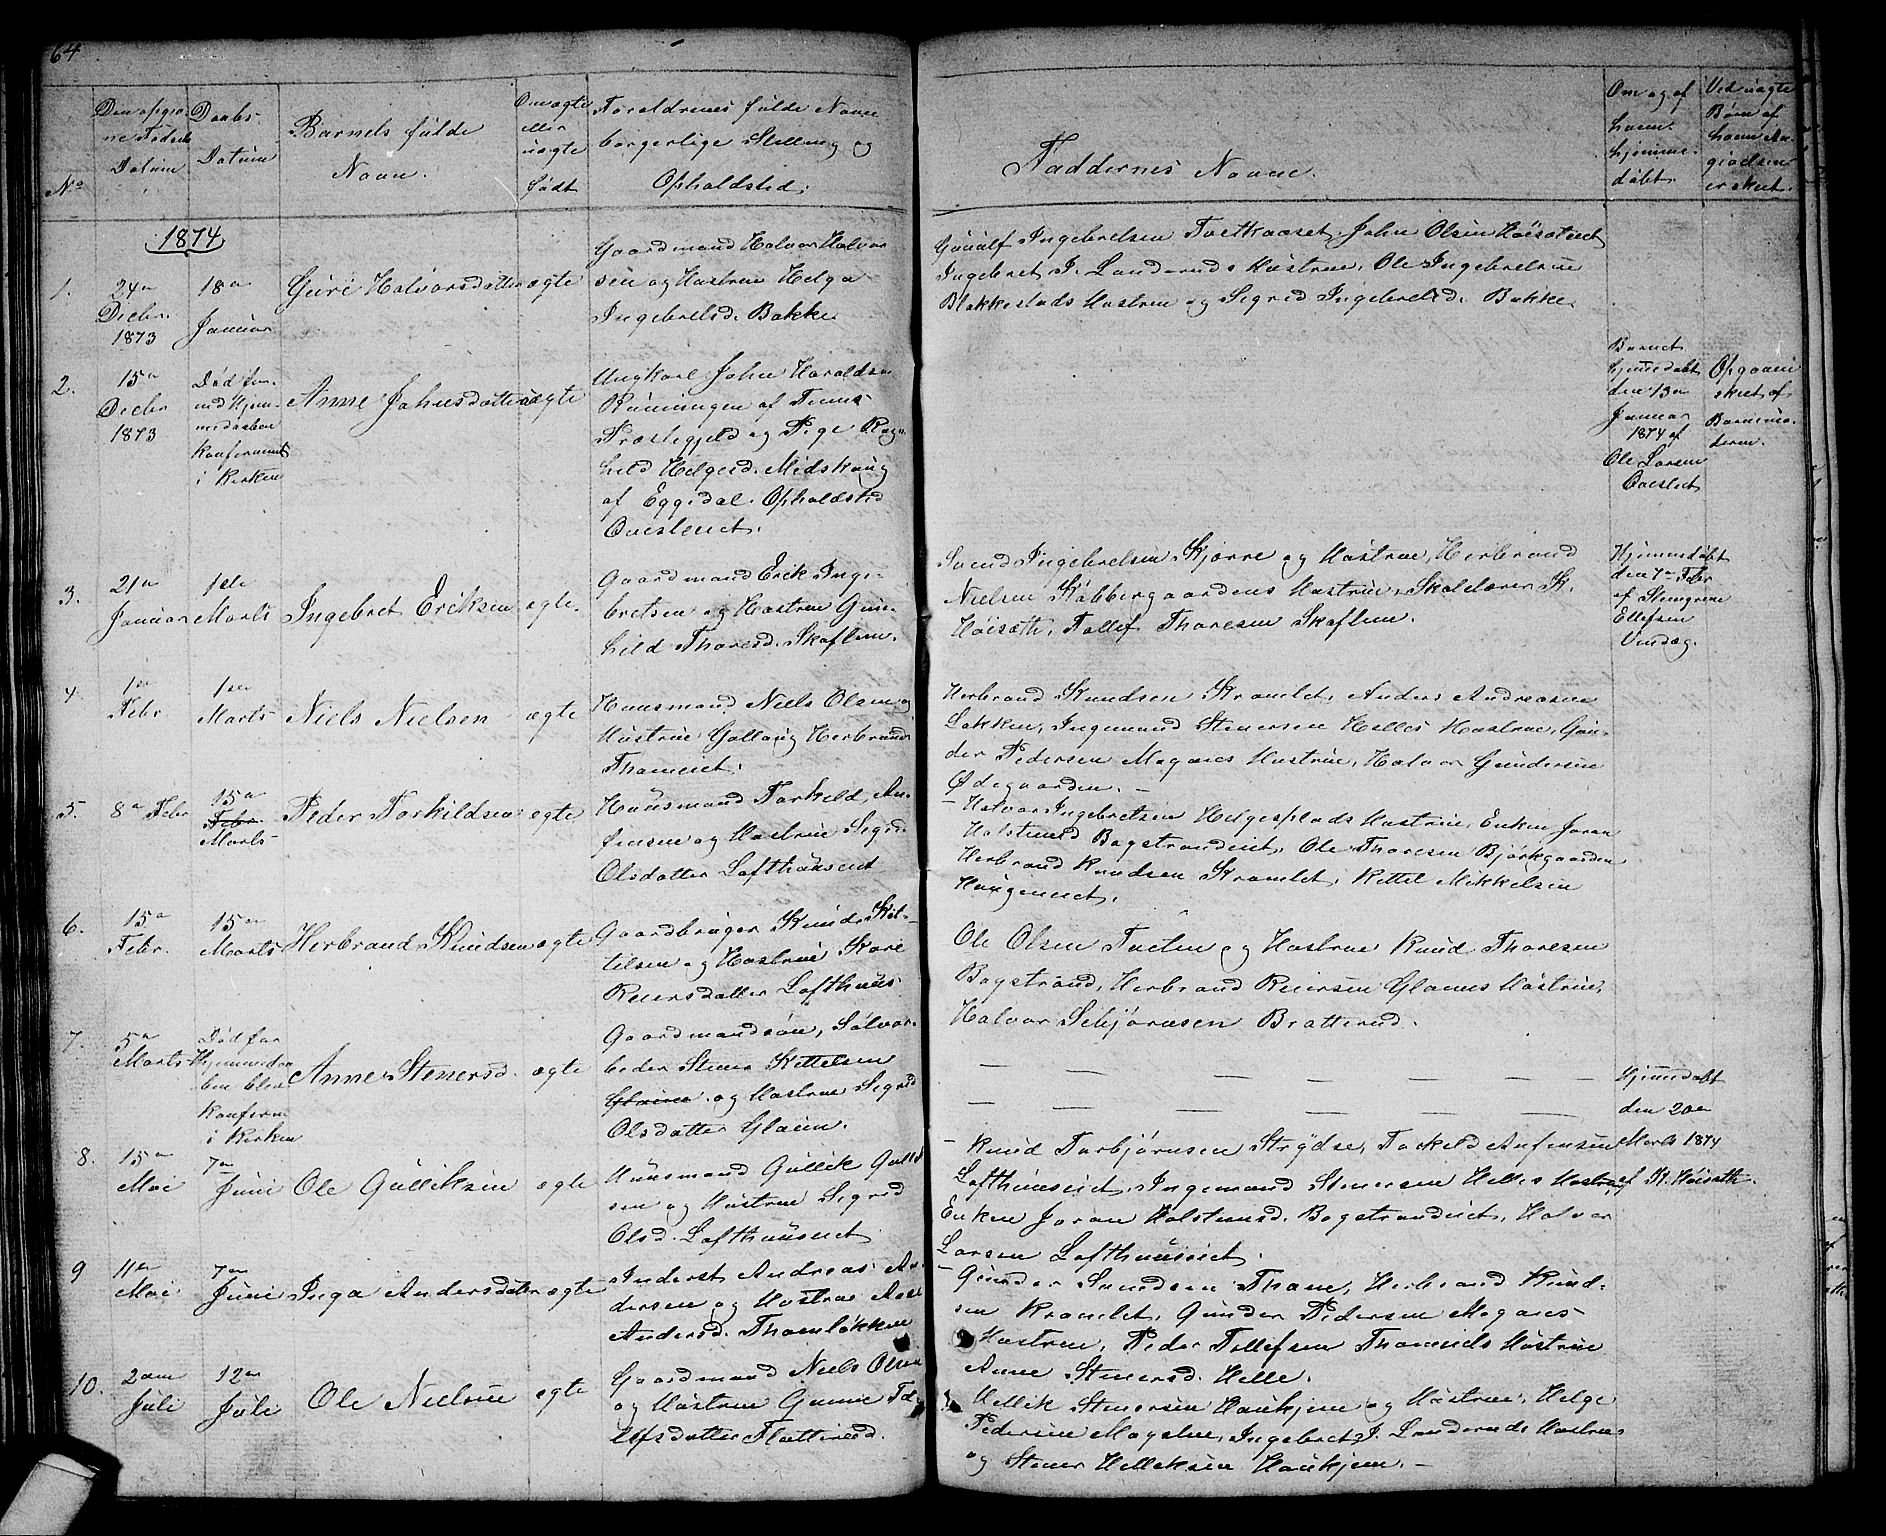 64
No
Den opgiv-
ne Fødsels
Datum
Daabs-
Datum
Barnets fulde
Navn.
Om ægte
eller
uægte
født
Foreldrenes fulde Navne
borgerlige Stilling og
Opholdsted.
Faddernes Navne.
Om og af
hvem
hjemme-
døbt.
Ved uægte
Børn af
hvem An-
givelsen
er skeet.
1874
1.
24de
Decbr.
1873
18de
Januar
Guri Halvorsdatter
ægte
Gaardmand Halvor Halvor
sen og Hustrue Helga
Ingebretsd. Bakke
Ingebretsen Tveitaaset, John Olsen Høisætret
Ingebret J. Landeruds Hustrue, Ole Ingebretsen
Blakkestads Hustrue og Segrid Ingebretsd. Bakke.
2.
15de
Decbr
1873
Død
i Kirken
Anne Johnsdatter
uægte
Ungkarl John Haraldsen
Rünningen af
Præstegjeld og Pige Ragn-
hild Helgesd. Midskoug
af Eggedal. Opholdsted
Barnet
hjemedøbt
den 13de
Januar
1874 af
Ole Larsen
Opgaven
skeet af
Barnemo-
deren.
3.
21de
Januar
1ste
Marts
Ingebret Eriksen
ægte.
Gaardmand Erik Inge-
bretsen og Hustrue Gun-
hild Thoresd. Skaflem.
Svend Ingebretsen Skjørre og Hustrue, Herbrand
Nielsen Kobbergaardens Hustrue, Skolelærer K.
Høisæth, Tollef Thoresen Skaflem.
Hjemmedøbt
den 7de Febr
af Stengrim
Ellefsen
4.
1ste
Febr
1ste
Marts
Niels Nielsen
ægte
Huusmand Niels Olsen og
Hustrue Gollaug Herbrand
Thameiet.
Herbrand Knudsen Kramlet, Anders Andreasen
Løkken, Ingemund Stenersen Helles Hustrue, Gun-
der Pedersen Magnes Hustrue, Halvor Gundersen
Ødegaarden. -
5.
8de Febr
15de
Febr.
Marts
Peder Torkildsen
ægte
Huusmand Torkild An-
finsen og Hustrue Segri
Olsdatter Lofthuuseiet
- Halvor Ingebretsen Helgesplads Hustrue, Enken Joran
Holstensd Bagstrandeiet, Ole Thoresen Bjørkgaarden
Herbrand Knudsen Kramlet, Kittel Mikkelsen
Haugeneiet.
6.
15de
Febr.
15de
Marts
Herbrand Knudsen
ægte
Gaardbruger Knud Kit-
tilsen og Hustrue Kari
Reiersdatter Lofthuus
Ole Olsen og Hustrue Knud Thoresen
Bagstrand, Herbrand Reiersen Glaims Hustrue,
Halvor Bratterud.
7.
5te
Marts
Død før
i Kirken
Anne Stenersd.
ægte
Gaardmandsøn, Sølvar-
beider Stener Kittelsen
Glaim og Hustrue Segrid
Olsdatter Glaim.
— — — — — —
— — — — — —
Hjemedøbt
den 20de
Marts 1874
af K. Høisæth.
8.
15de
Mai
7de
Juni
Ole Gulliksen
ægte
Huusmand Gullik
sen og Hustrue Segrid
Olsd. Lofthuuseiet
- Knud Torbjørnsen Strydse, Torkeld Anfinsen
Lofthuuseiet, Ingemund Stenersen Helles Hustrue,
Enken Joran Holstensd. Bagstrandeiet, Halvor
Larsen Lofthuuseiet.
9
11te
Mai
7de
Juni
Inga Andersdatter
ægte
Inderst Andreas An-
dersen og Hustrue
Andersd. Thamløkken
- Gunder Svendsen Thame, Herbrand Knud-
sen Kramlet, Gunder Pedersen Magnes
Hustrue, Peder Tollefsen Thameids Hustrue
Anne Stenersd. Helle.
10.
2den
Juli
12te
Juli
Ole Nielsen
ægte
Gaardmand Niels Olsen
og Hustrue Gunne
Hellik Stenersen Haukjem og Hustrue, Helge
Pedersen, Ingebret J. Landeruds Hustrue
og Stener Helleksen Haukjem. -